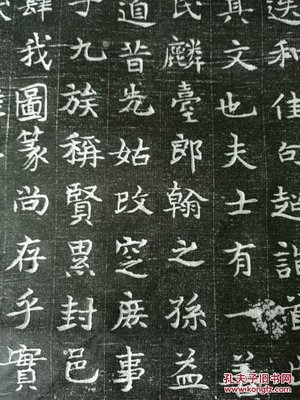 迭和佳句超詣
其文也夫士有一
民麟臺郎翰之孫益
道昔先姑改窆庶事
九族稱賢累封邑
肆我圖篆尚存乎實
孔夫子旧书网